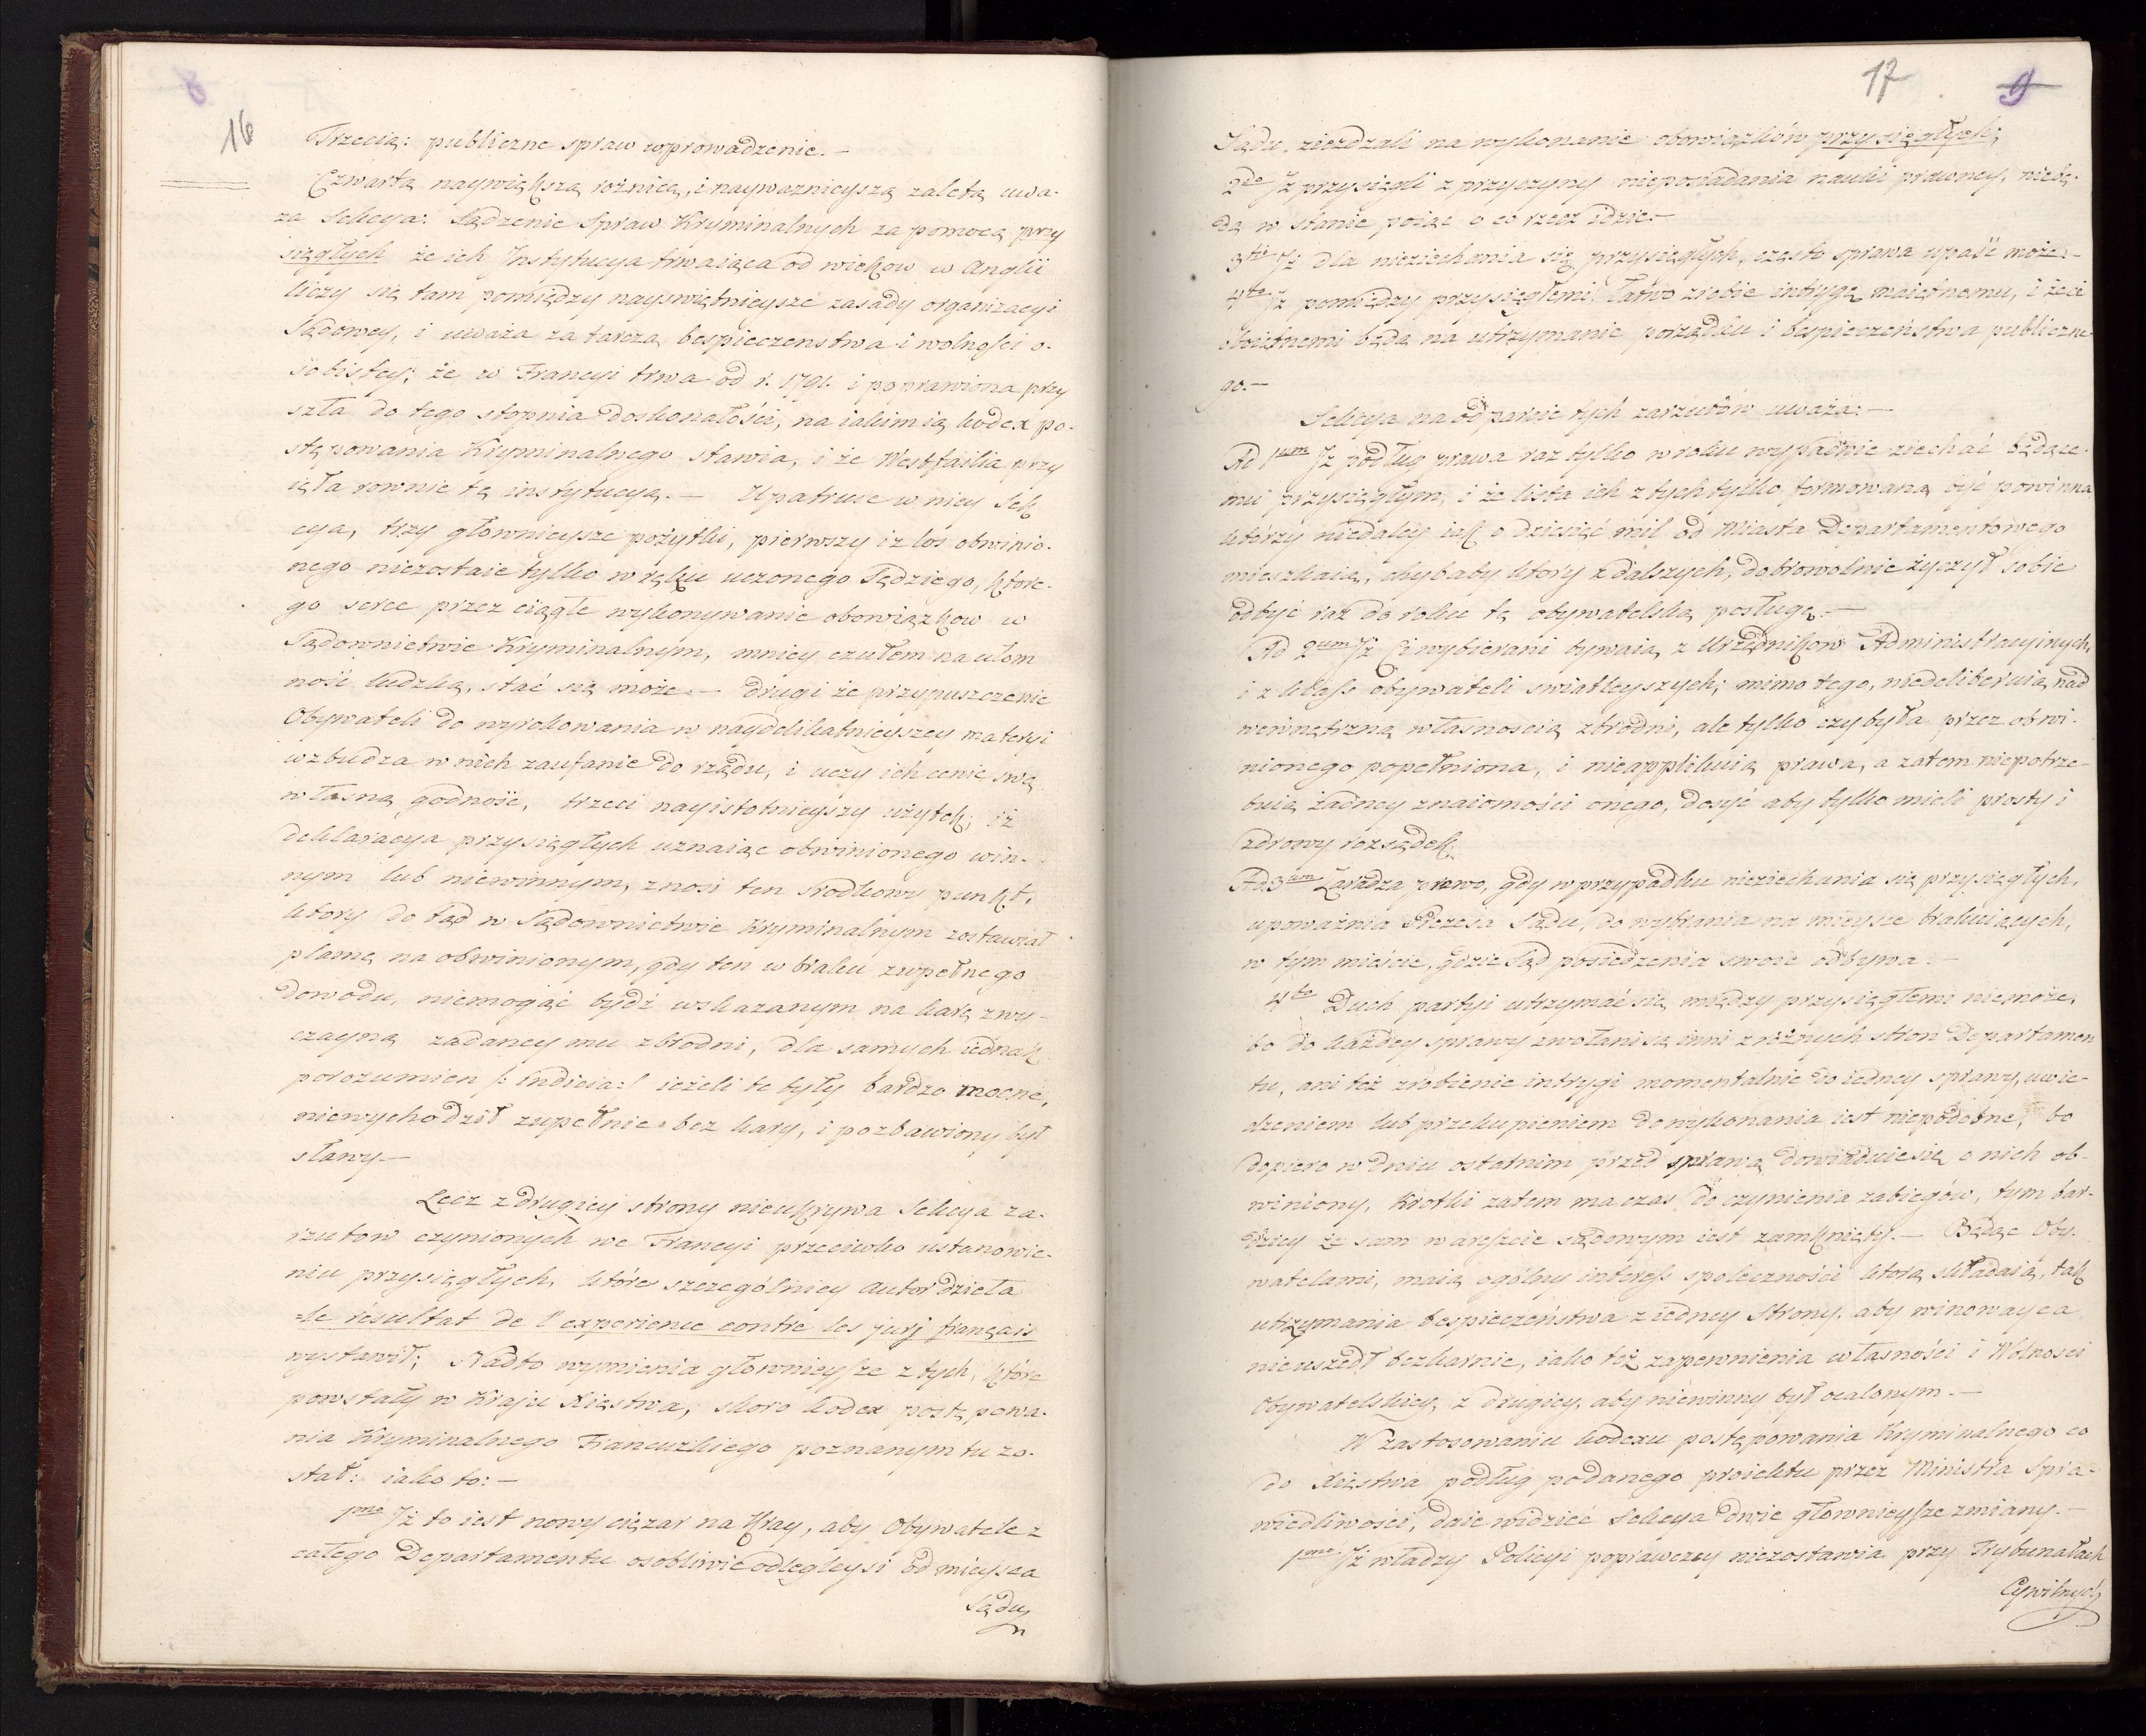 16
Trzecią: publiczne spraw wprowadzenie.—
Czwartą naywiększą rożnicą, i naywaznieyszą zaletą uwa-
za Sekcya: Sądzenie Spraw Kryminalnych za pomocą przy
sięgłych że ich Jnstytucya trwaiąca od wiekow w Anglii
liczy się tam pomiędzy nayswiętnieysze zasady organizacyi
Sądowey, i uważa za tarczą bespieczenstwa i wolności o-
sobistey; że w Francyi trwa od r. 1791. i poprawiona przy
szła do tego stopnia doskonałości, na iakim ią kodex po-
stępowania Kryminalnego stawia, i że Westfailia przy
ięła rownie tę instytucyą.— Upatruie w niey Sek
cya, trzy głownieysze pożytki, pierwszy iz los obwinio-
nego niezostaie tylko w ręku uczonego Sędziego, ktore-
go serce przez ciągłe wykonywanie obowiązkow w
Sądownictwie Kryminalnym, mniey czułem na ułom
ność ludzką, stać się może.— drugi że przypuszczenie
Obywateli do wyrokowania w naydelikatnieyszey materyi
wzbudza w nich zaufanie do rządu, i uczy ich cenić swą
własną godność, trzeci nayistotnieyszy użytek; iż
deklaracya przysięgłych uznaiąc obwinionego win-
nym lub niewinnym, znosi ten srodkowy punkt,
ktory do tąd w Sądownictwie Kryminalnym zostawiał
plamę na obwinionym, gdy ten w braku zupełnego
dowodu, niemogąc bydź wskazanym na karę zwy-
czayną zadaney mu zbrodni, dla samych iednak
porozumien /: indicia:/ ieżeli te były bardzo mocne,
niewychodził zupełnie bez kary, i pozbawiony był
sławy.—
Lecz z drugiey strony nieukrywa Sekcya za-
rzutow czynionych we Francyi przeciwko ustanowie-
niu przysięgłych, które szczególniey autor dzieła
=le résultat de l'experience contre les jurj français
wystawił; Nadto wymienia głownieysze z tych, które
powstały w Kraju Xięstwa, skoro kodex postępowa-
nia Kryminalnego Francuzkiego poznanym tu zo-
stał: iako to:—
1mo Jż to iest nowy ciężar na Kray, aby Obywatele z
całego Departamentu osobliwie odlegleysi od mieysca
Sądu
17 9
Sądu, zieżdzali na wykonanie obowiązków przysięgłych;
2do Jż przysięgli z przyczyny nieposiadania nauki prawney, niebę-
dą w stanie poiąć o co rzecz idzie.—
3tio Jż dla nieziechania się przysięgłych, często sprawa upaść może.—
4to Jż pomiędzy przysięgłemi łatwo zrobić intrygę maiętnemu, i że ci
oboiętnemi będą na utrzymanie porządku i bespieczeństwa publiczne-
go.—
Sekcya na odparcie tych zarzutów uważa:—
Ad 1um Jż podług prawa raz tylko w roku wypadnie ziechać będące-
mu przysięgłym, i że lista ich z tych tylko formowaną być powinna
którzy niedaley iak o dziesięć mil od Miasta Departamentowego
mieszkaią, chybaby ktory z dalszych, dobrowolnie życzył sobie
odbyć raz do roku tę obywatelską posługę.—
Ad 2um Jż Ci wybierani bywaią z Urzędnikow Administracyinych,
i z klass obywateli swiatleyszych; mimo tego, niedeliberuią nad
wewnętrzną własnoscią zbrodni, ale tylko czy była przez obwi-
nionego popełniona, i nieapplikuią prawa, a zatem niepotrze-
buią żadney znaiomości onego, dosyć aby tylko mieli prosty i
zdrowy rozsądek.
Ad 3um Zaradza prawo, gdy w przypadku nieziechania się przysięgłych,
upoważnia Prezesa Sądu, do wybrania na mieysce brakuiących,
w tym mieście, gdzie Sąd posiedzenia swoie odbywa.—
4to Duch partyi utrzymać się między przysięgłemi niemoże,
bo do każdey sprawy zwołani są inni z różnych stron Departamen
tu, ani też zrobienie intrygi momentalnie do iedney sprawy, uwie-
dzeniem lub przekupieniem do wykonania iest niepodobne, bo
dopiero w dniu ostatnim przed sprawą dowiaduie się o nich ob-
winiony, Krotki zatem ma czas do czynienia zabiegów, tym bar-
dziey że sam w areszcie sądowym iest zamknięty.— Będąc Oby-
watelami, maią ogólny interess społeczności ktorą składaią, tak
utrzymania bespieczeństwa z iedney Strony, aby winowayca
nieuszedł bezkarnie, iako też zapewnienia własności i Wolnosci
Obywatelskiey, z drugiey, aby niewinny był ocalonym.—
W zastosowaniu kodexu postępowania Kryminalnego co
do Xięstwa podług podanego proiektu przez Ministra Spra-
wiedliwości, daie widzieć Sekcya dwie głownieysze zmiany.—
1mo Jż władzy Policyi poprawczey niezostawia przy Trybunałach
Cywilnych